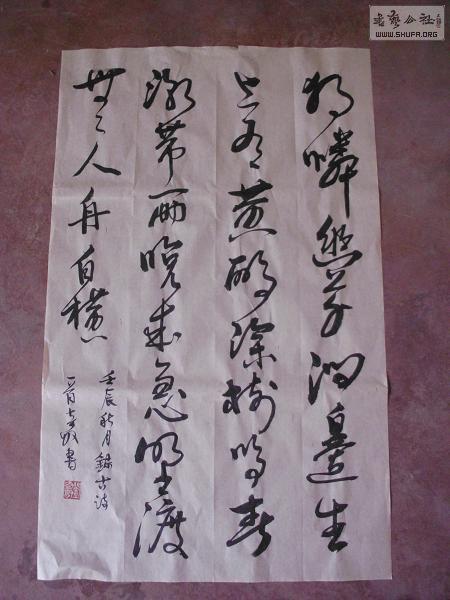 書藝公社
WWW.SHUFA.ORG
独憐幽草澗邊生
上有黄鹂深樹鸣春
潮带雨晚来急野渡
無人舟自横
壬辰秋月錄古詩
一首書